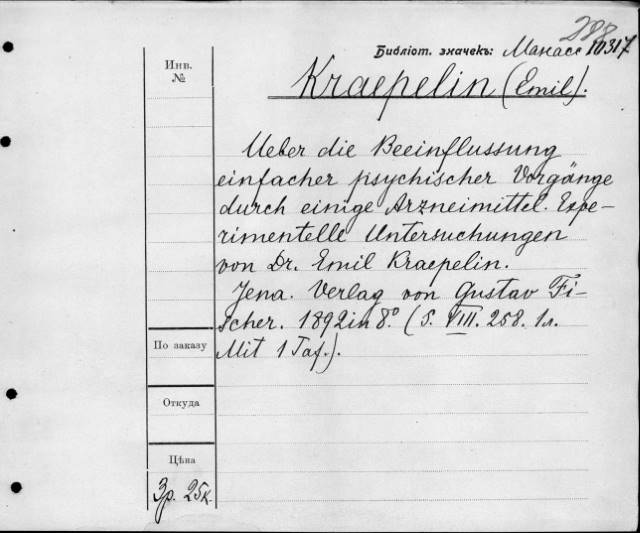 288
Библіот. значекъ: Манасс 10317
Инв.
№
Kraepelin (Emil).
Ueber die Beeinflussung
einfacher psychischer Vorgänge
durch einige Arzneimittel. Expe-
rimentelle Untersuchungen
von Dr. Emil Kraepelin.
Jena. Verlag von Gustav Fi-
scher. 1892 in 8º. (S. VIII. 258. 1 л.
Mit 1 Taf.).
По заказу
Откуда
Цѣна
3 р. 25 к.